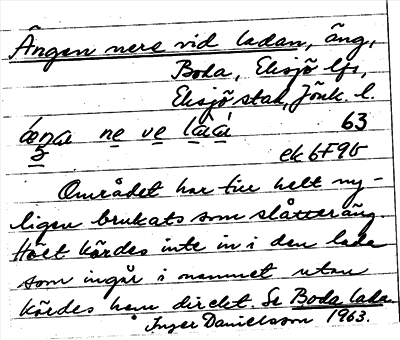 Ängen nere vid ladan, äng,
Boda, Eksjö lfs,
Eksjö stad, Jönk. l.
63
ek 6F9b
Området har tills helt ny-
ligen brukats som slåtteräng.
Höet kördes inte in i den lada
som ingår i namnet utan
kördes hem direkt. Se Boda lada.
Inger Danielsson 1963.